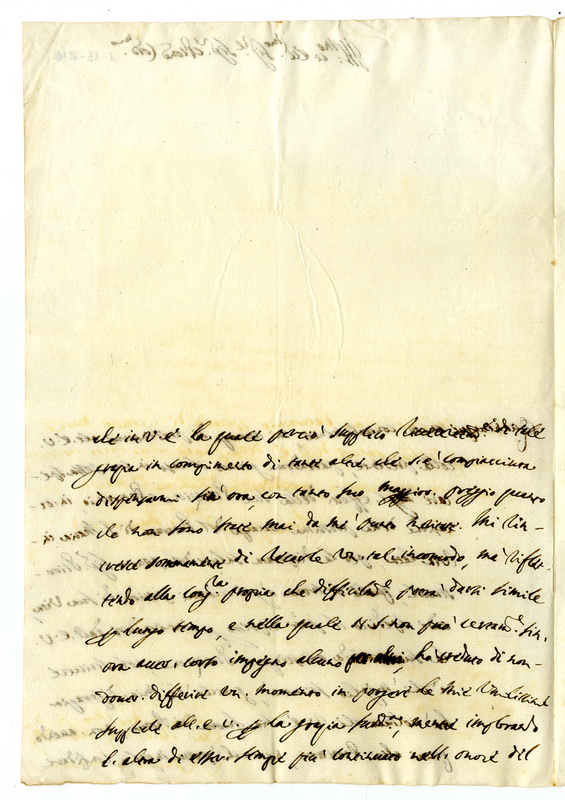 che in V. E. la quale perciò supplico di tale
grazia in compimento di tante altre che s'è compiacciuta
dispensarmi sin'ora, con tanto suo maggior preggio quanto
che non sono state mai da me punto meritate. Mi rin-
cresce sommamente di recarle un tal incomodo, ma riflet-
tendo alla propria che difficilmte potrà darsi simile
lungo tempo, e nella quale N. S. non può certamte sin'
ora aver corso impegno alcuno, ho creduto di non
dover differire un momento in porgere le mie umilissime
suppliche all'E. V. la grazia, mentre implorando
l'altra di esser sempre più continuato nell'onore del